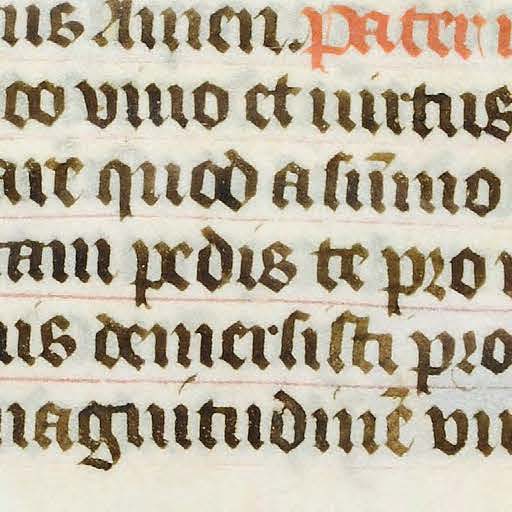 nis Amen. Pater
co vino et uirtus
are quod a su̅mo
tam pedis te pro
uis demersisti pro
magnitudine̅ vu